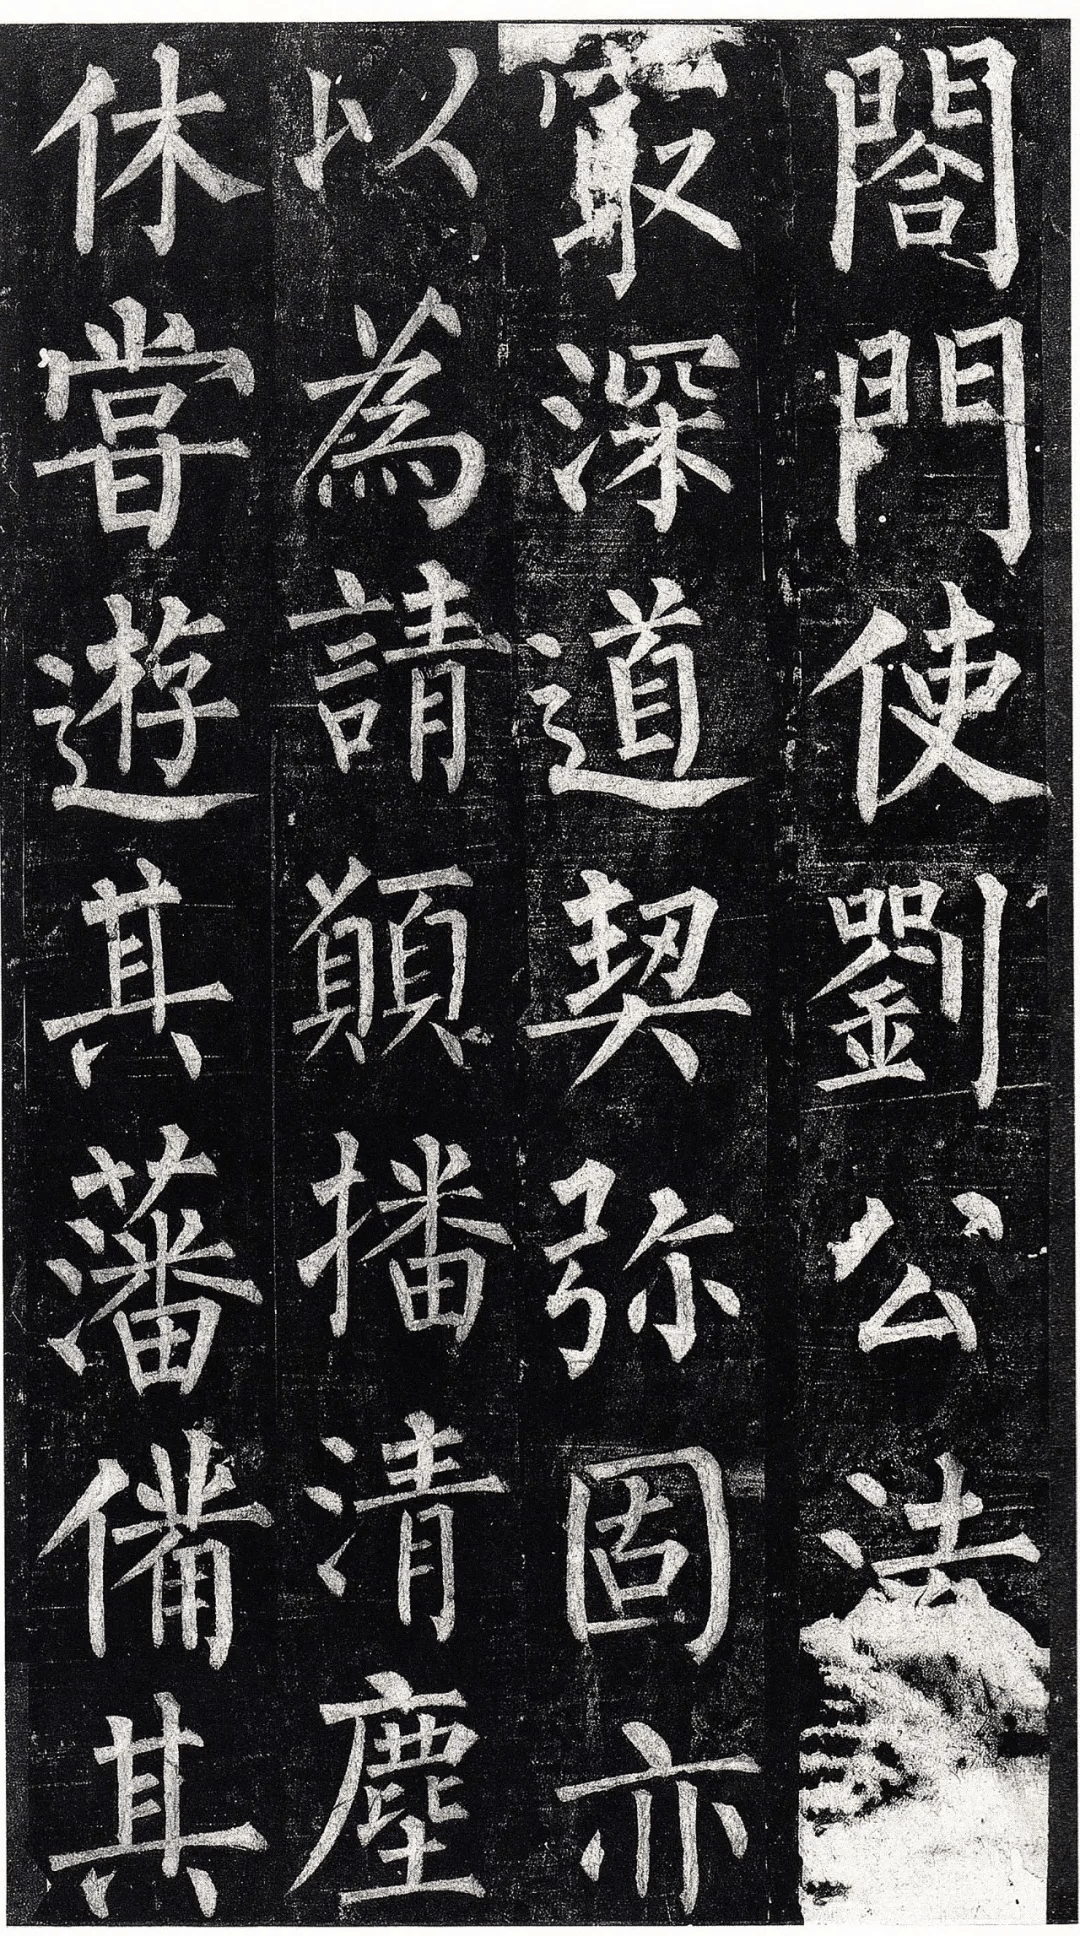 閤門使劉公法
冣深道契弥固亦
以為請願播清塵
休甞遊其藩備其